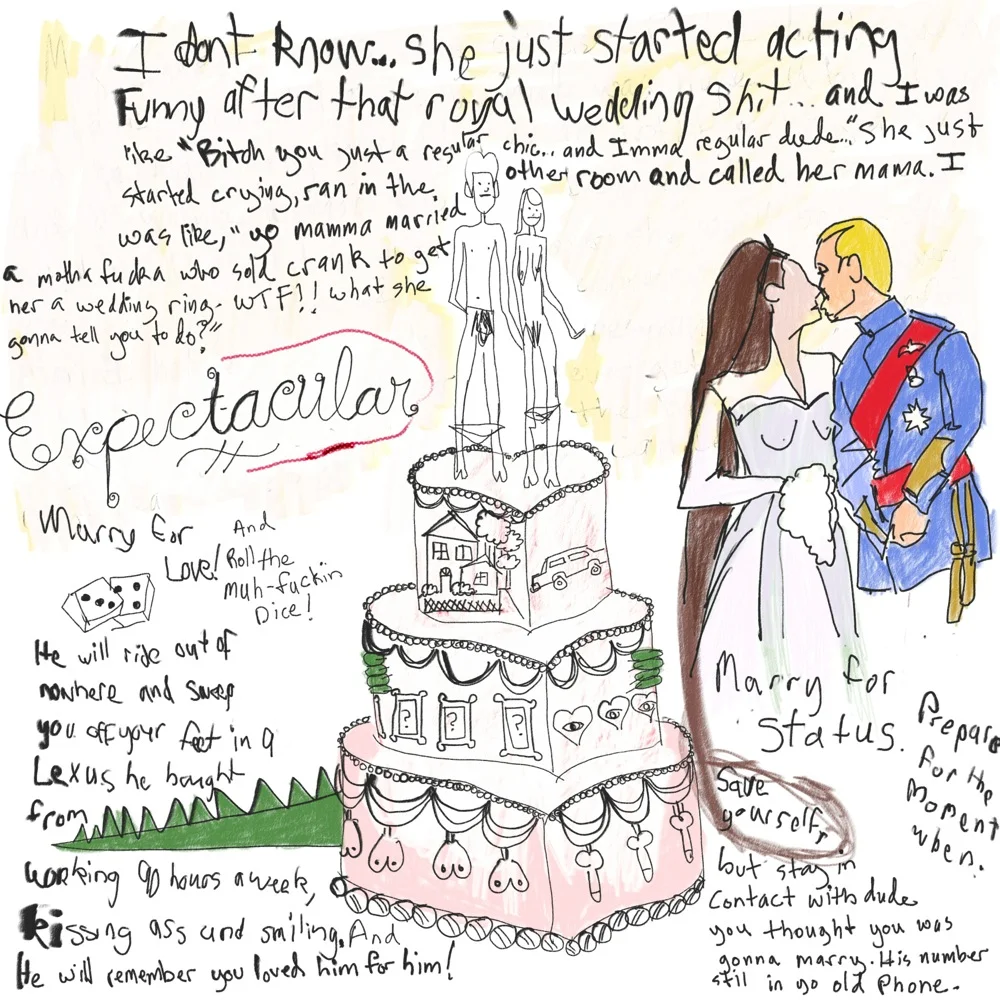 I dont know... she just started acting
Funny after that royal wedding shit... and I was
like "Bitch you just a regular chic.. and Imma regular dude.." She just
started crying, ran in the other room and called her mama. I
was like, "yo mamma married
a motha fucka who sold crank to get
her a wedding ring. WTF!! what she
gonna tell you to do?"
Expectacular
Marry for
Love!
And
Roll the
Muh-fuckin
Dice!
He will ride out of
nowhere and sweep
you off your feet in a
Lexus he bought
from
working 90 hours a week,
kissing ass and smiling. And
He will remember you loved him for him!
? ? ?
Marry for
Status.
Save
yourself,
but stay in
contact with dude
you thought you was
gonna marry. His number
still in yo old phone.
Prepare
for the
moment
when.